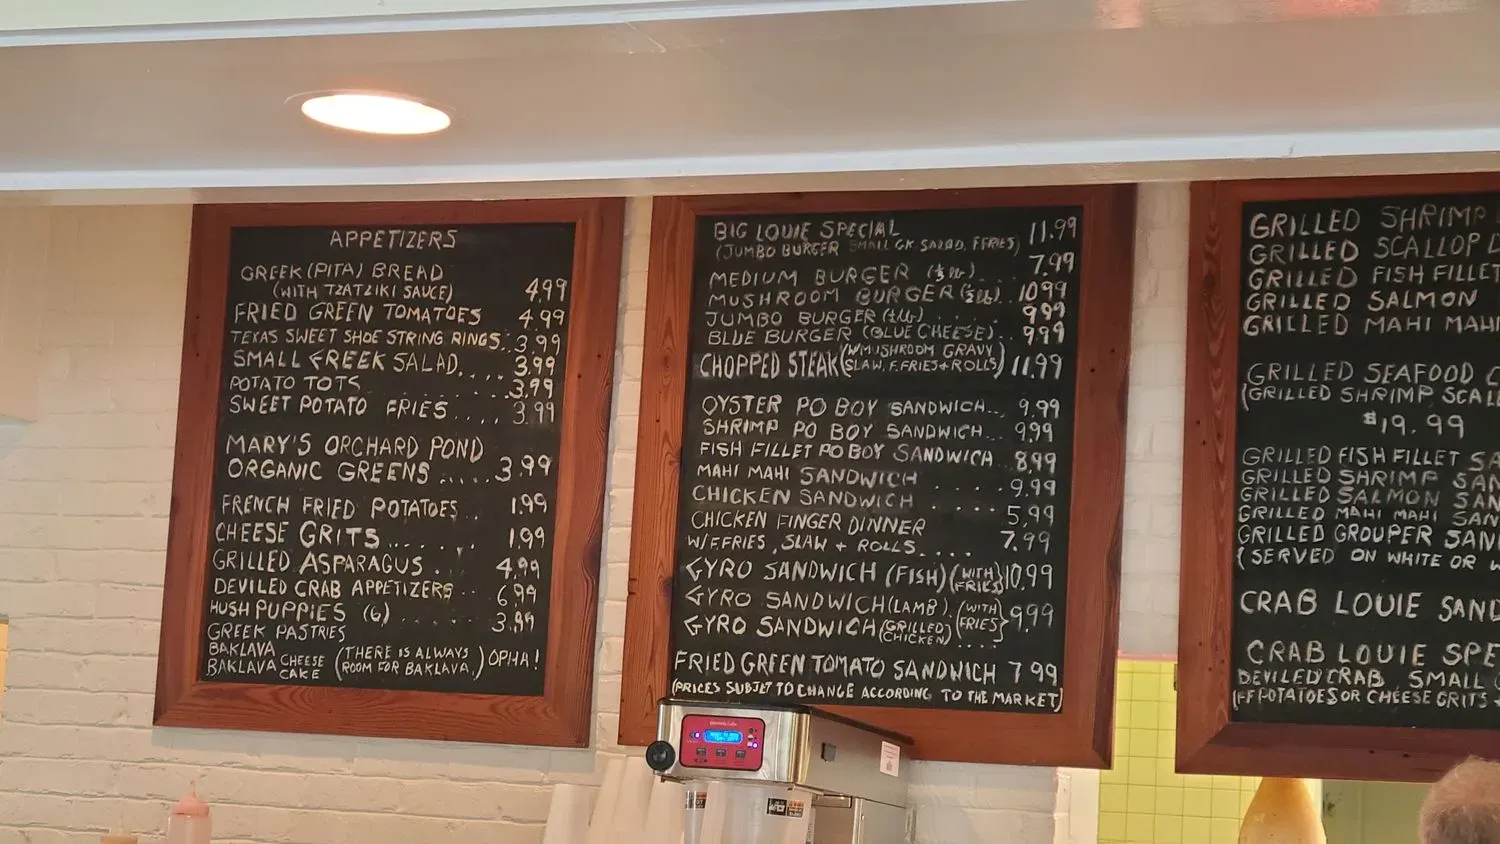 APPETIZERS
GREEK (PITA) BREAD
(WITH TZATZIKI SAUCE) 4.99
FRIED GREEN TOMATOES 4.99
TEXAS SWEET SHOE STRING RINGS.. 3.99
SMALL GREEK SALAD.... 3.99
POTATO TOTS ..... 3.99
SWEET POTATO FRIES... 3.99
MARY'S ORCHARD POND
ORGANIC GREENS..... 3.99
FRENCH FRIED POTATOES.. 1.99
CHEESE GRITS...... 1.99
GRILLED ASPARAGUS.. 4.99
DEVILED CRAB APPETIZERS.. 6.99
HUSH PUPPIES (6)...... 3.99
GREEK PASTRIES
BAKLAVA
BAKLAVA CHEESE CAKE (THERE IS ALWAYS ROOM FOR BAKLAVA.) OPHA!
BIG LOUIE SPECIAL 11.99
(JUMBO BURGER SMALL GK. SALAD, F.FRIES)
MEDIUM BURGER 7.99
MUSHROOM BURGER 10.99
JUMBO BURGER 9.99
BLUE BURGER (BLUE CHEESE).. 9.99
CHOPPED STEAK (W/MUSHROOM GRAVY SLAW, F.FRIES + ROLLS) 11.99
OYSTER PO BOY SANDWICH... 9.99
SHRIMP PO BOY SANDWICH... 9.99
FISH FILLET PO BOY SANDWICH... 8.99
MAHI MAHI SANDWICH ..... 9.99
CHICKEN SANDWICH ..... 5.99
CHICKEN FINGER DINNER
W/F.FRIES, SLAW + ROLLS.... 7.99
GYRO SANDWICH (FISH) (WITH FRIES) 10.99
GYRO SANDWICH (LAMB) (WITH FRIES) 9.99
GYRO SANDWICH (GRILLED CHICKEN) ....
FRIED GREEN TOMATO SANDWICH 7.99
(PRICES SUBJET TO CHANGE ACCORDING TO THE MARKET)
GRILLED SHRIMP
GRILLED SCALLOP D
GRILLED FISH FILLET
GRILLED SALMON
GRILLED MAHI MAHI
GRILLED SEAFOOD C
(GRILLED SHRIMP SCAL
$19.99
GRILLED FISH FILLET SA
GRILLED SHRIMP SAN
GRILLED SALMON SAN
GRILLED MAHI MAHI SAN
GRILLED GROUPER SAN
(SERVED ON WHITE OR W
CRAB LOUIE SAND
CRAB LOUIE SPE
DEVILED CRAB, SMALL
(FF POTATOES OR CHEESE GRITS +